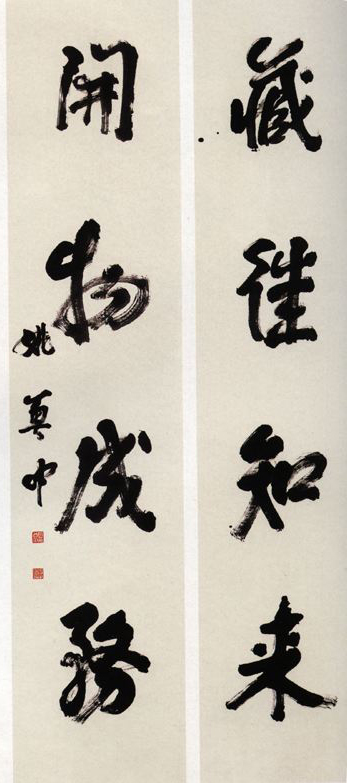 藏往知来
開物成務
姚奠中